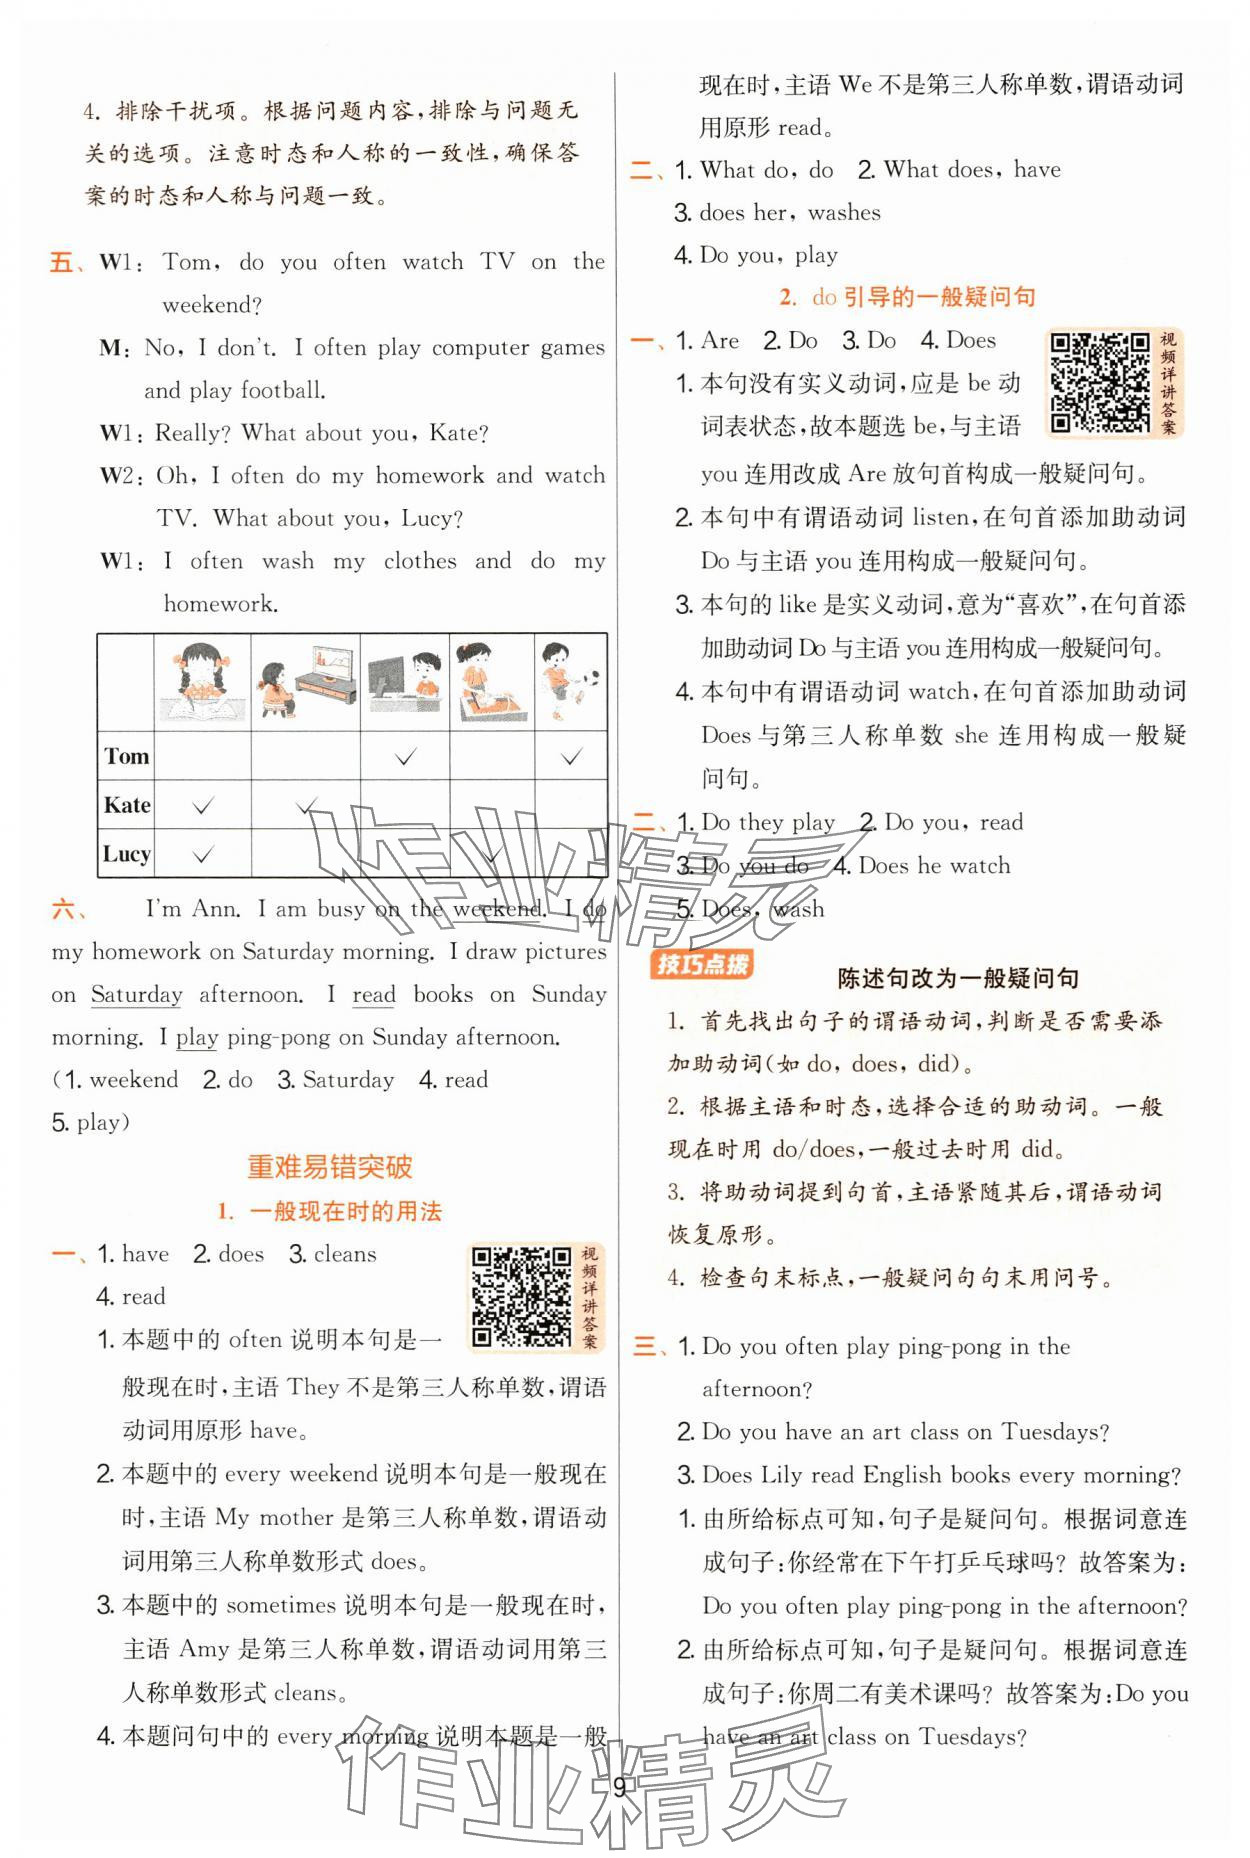 4. 排除干扰项。根据问题内容,排除与问题无
关的选项。注意时态和人称的一致性,确保答
案的时态和人称与问题一致。
五、W1: Tom, do you often watch TV on the
weekend?
M: No, I don't. I often play computer games
and play football.
W1: Really? What about you, Kate?
W2: Oh, I often do my homework and watch
TV. What about you, Lucy?
W1: I often wash my clothes and do my
homework.
Tom ✓ ✓
Kate ✓ ✓
Lucy ✓ ✓
六、 I'm Ann. I am busy on the weekend. I do
my homework on Saturday morning. I draw pictures
on Saturday afternoon. I read books on Sunday
morning. I play ping-pong on Sunday afternoon.
(1. weekend 2. do 3. Saturday 4. read
5. play)
重难易错突破
1. 一般现在时的用法
一、1. have 2. does 3. cleans
4. read
视频详讲答案
1. 本题中的 often 说明本句是一
般现在时,主语 They 不是第三人称单数,谓语
动词用原形 have。
2. 本题中的 every weekend 说明本句是一般现在
时,主语 My mother 是第三人称单数,谓语动
词用第三人称单数形式 does。
3. 本题中的 sometimes 说明本句是一般现在时,
主语 Amy 是第三人称单数,谓语动词用第三
人称单数形式 cleans。
4. 本题问句中的 every morning 说明本题是一般
现在时,主语 We 不是第三人称单数,谓语动词
用原形 read。
二、1. What do, do 2. What does, have
3. does her, washes
4. Do you, play
2. do 引导的一般疑问句
一、1. Are 2. Do 3. Do 4. Does
视频详讲答案
1. 本句没有实义动词,应是 be 动
词表状态,故本题选 be,与主语
you 连用改成 Are 放句首构成一般疑问句。
2. 本句中有谓语动词 listen,在句首添加助动词
Do 与主语 you 连用构成一般疑问句。
3. 本句的 like 是实义动词,意为“喜欢”,在句首添
加助动词 Do 与主语 you 连用构成一般疑问句。
4. 本句中有谓语动词 watch,在句首添加助动词
Does 与第三人称单数 she 连用构成一般疑
问句。
二、1. Do they play 2. Do you, read
3. Do you do 4. Does he watch
5. Does, wash
技巧点拨
陈述句改为一般疑问句
1. 首先找出句子的谓语动词,判断是否需要添
加助动词(如 do, does, did)。
2. 根据主语和时态,选择合适的助动词。一般
现在时用 do/does,一般过去时用 did。
3. 将助动词提到句首,主语紧随其后,谓语动词
恢复原形。
4. 检查句末标点,一般疑问句句末用问号。
三、1. Do you often play ping-pong in the
afternoon?
2. Do you have an art class on Tuesdays?
3. Does Lily read English books every morning?
1. 由所给标点可知,句子是疑问句。根据词意连
成句子:你经常在下午打乒乓球吗?故答案为:
Do you often play ping-pong in the afternoon?
2. 由所给标点可知,句子是疑问句。根据词意连
成句子:你周二有美术课吗?故答案为:Do you
have an art class on Tuesdays?
作业精灵
作业精灵
9